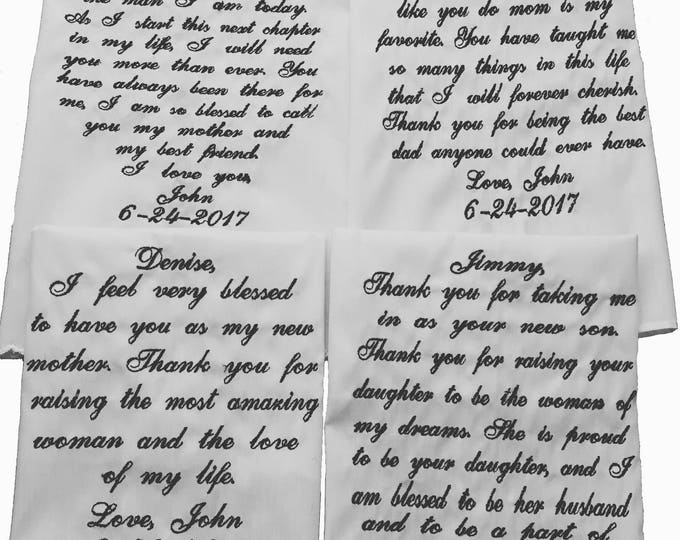 the man I am today.
As I start this next chapter
in my life, I will need
you more than ever. You
have always been there for
me, I am so blessed to call
you my mother and
my best friend.
I love you,
John
6-24-2017
like you do mom is my
favorite. You have taught me
so many things in this life
that I will forever cherish.
Thank you for being the best
dad anyone could ever have.
Love, John
6-24-2017
Denise,
I feel very blessed
to have you as my new
mother. Thank you for
raising the most amazing
woman and the love
of my life.
Love, John
Jimmy,
Thank you for taking me
in as your new son.
Thank you for raising your
daughter to be the woman of
my dreams. She is proud
to be your daughter, and I
am blessed to be her husband
and to be a part of